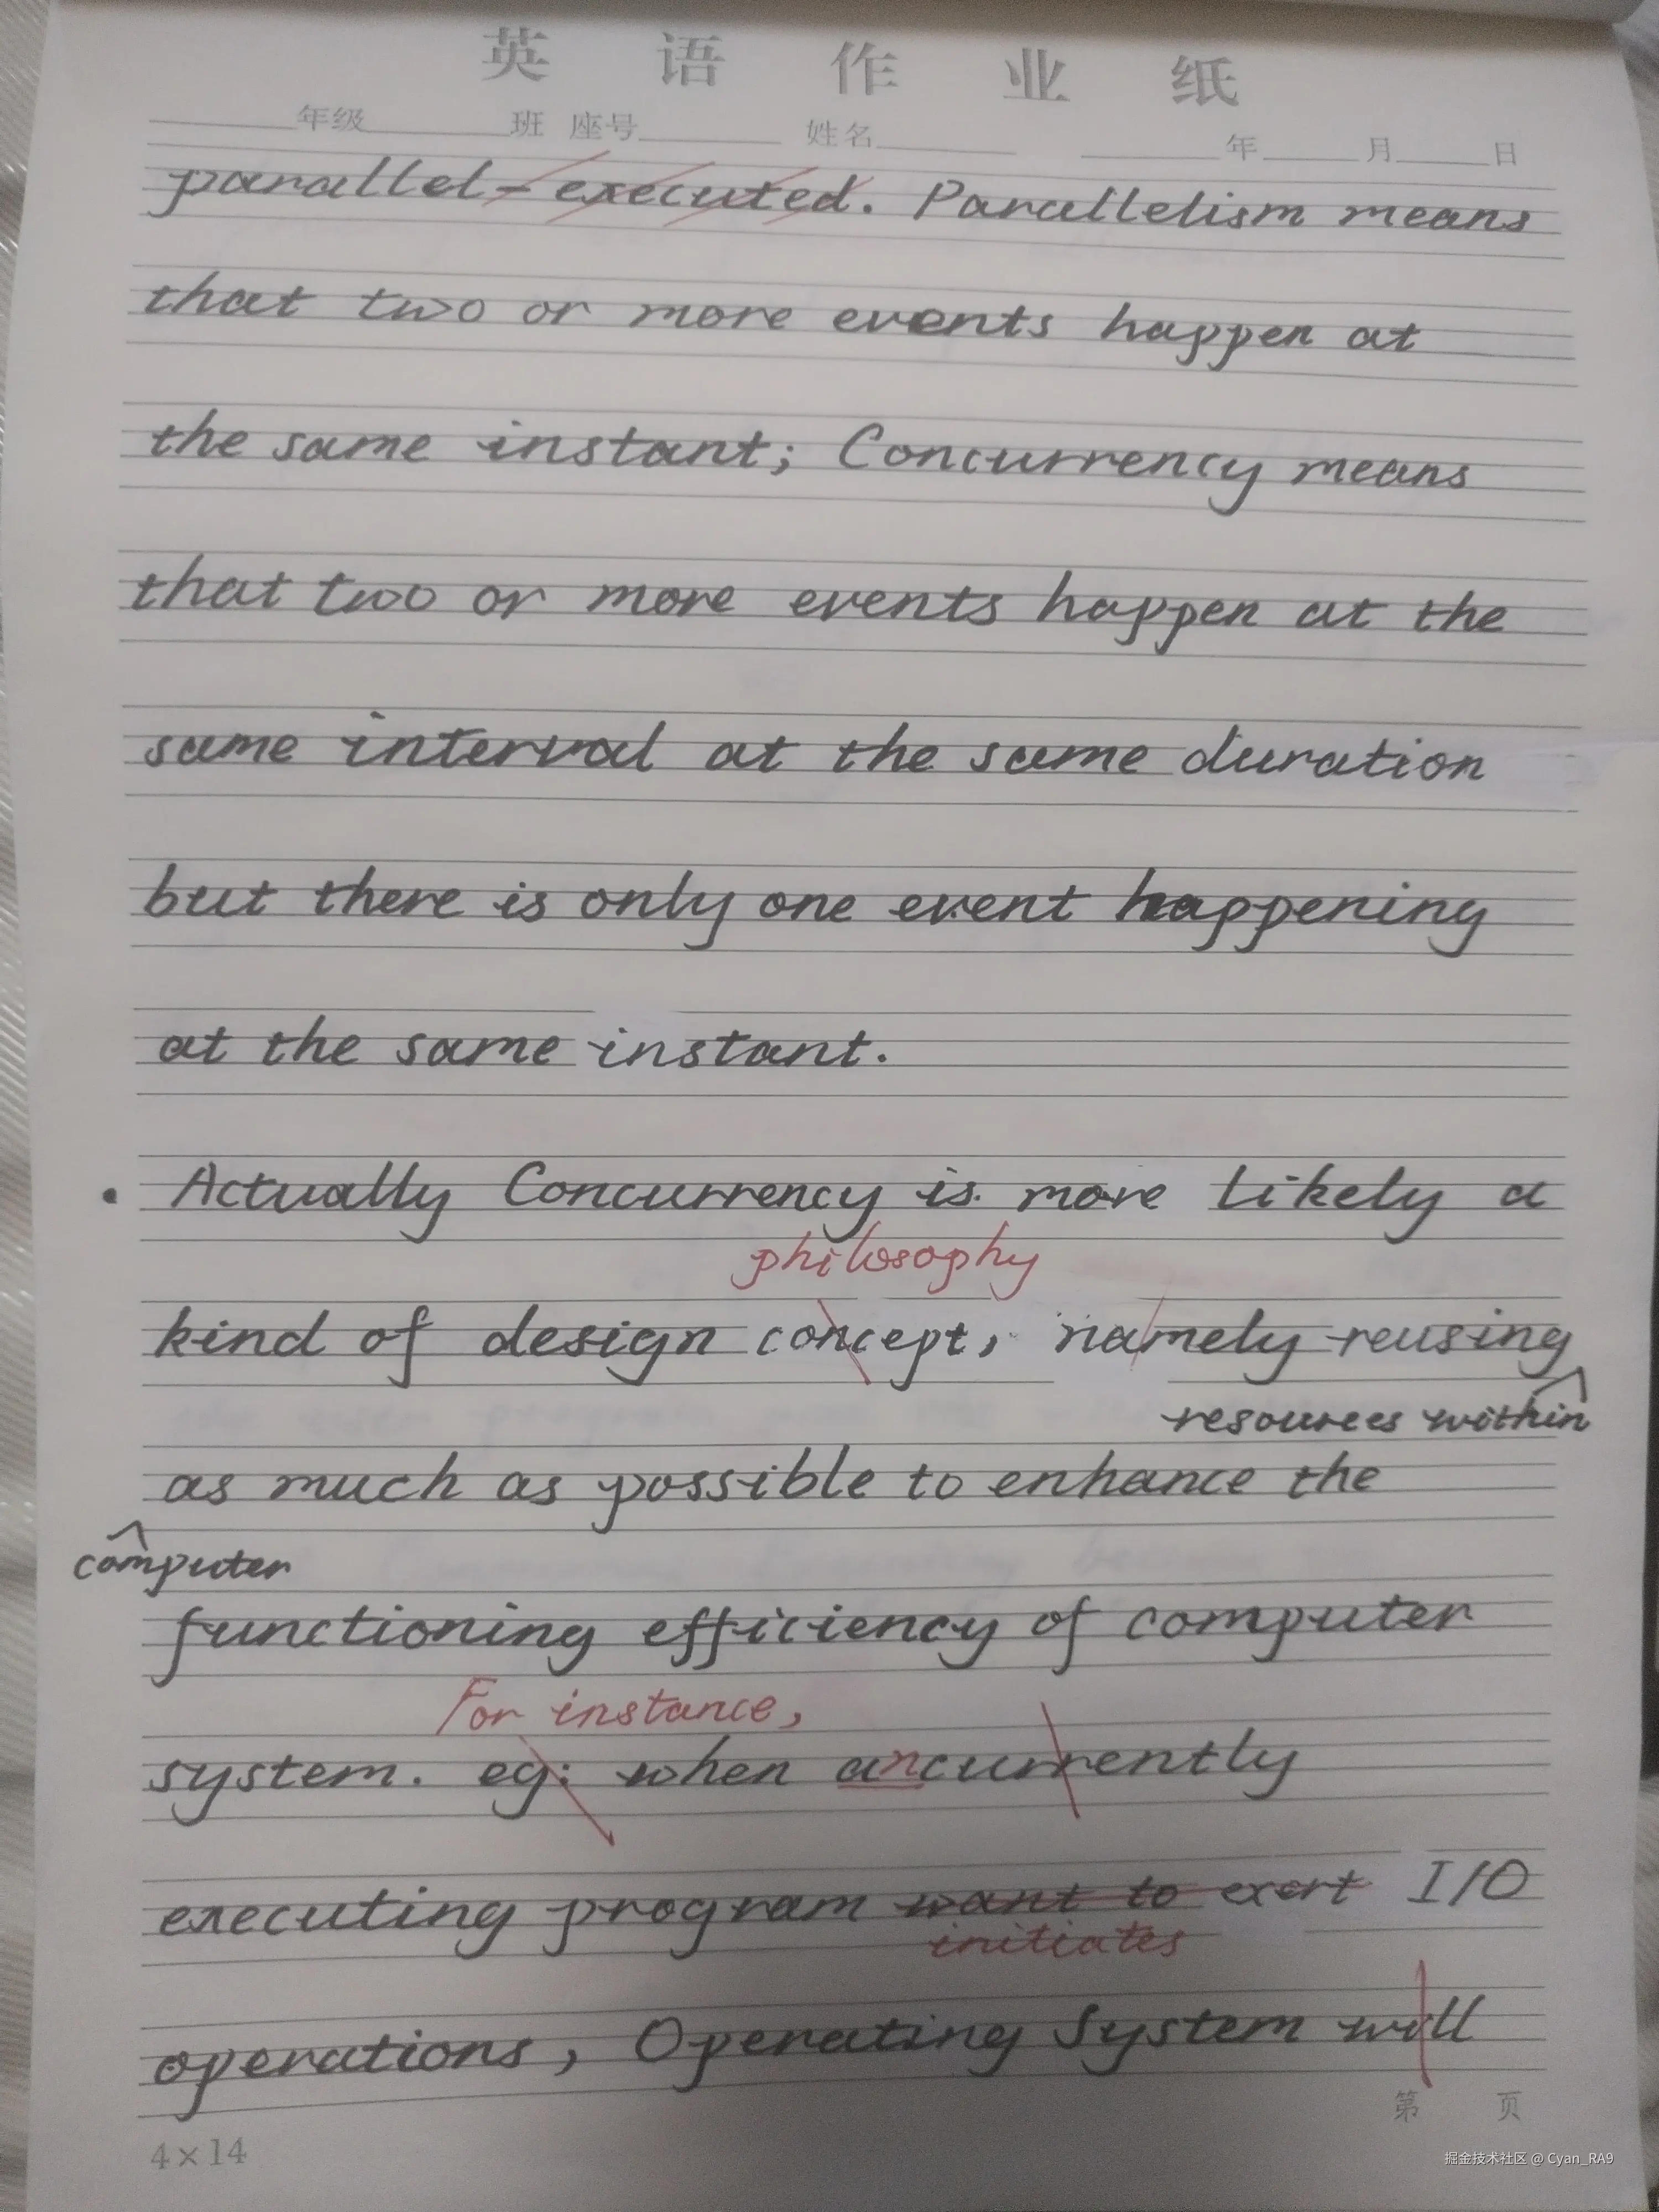 英语作业纸
年级 班 座号 姓名 年 月 日
parallel-executed. Parallelism means
that two or more events happen at
the same instant; Concurrency means
that two or more events happen at the
same interval at the same duration
but there is only one event happening
at the same instant.
• Actually Concurrency is more likely a
philosophy
kind of design concept, namely reusing
resources within
as much as possible to enhance the
computer
functioning efficiency of computer
For instance,
system. eg: when concurrently
executing program want to exert I/O
initiates
operations, Operating System will
第 页
4×14
掘金技术社区 @ Cyan_RA9